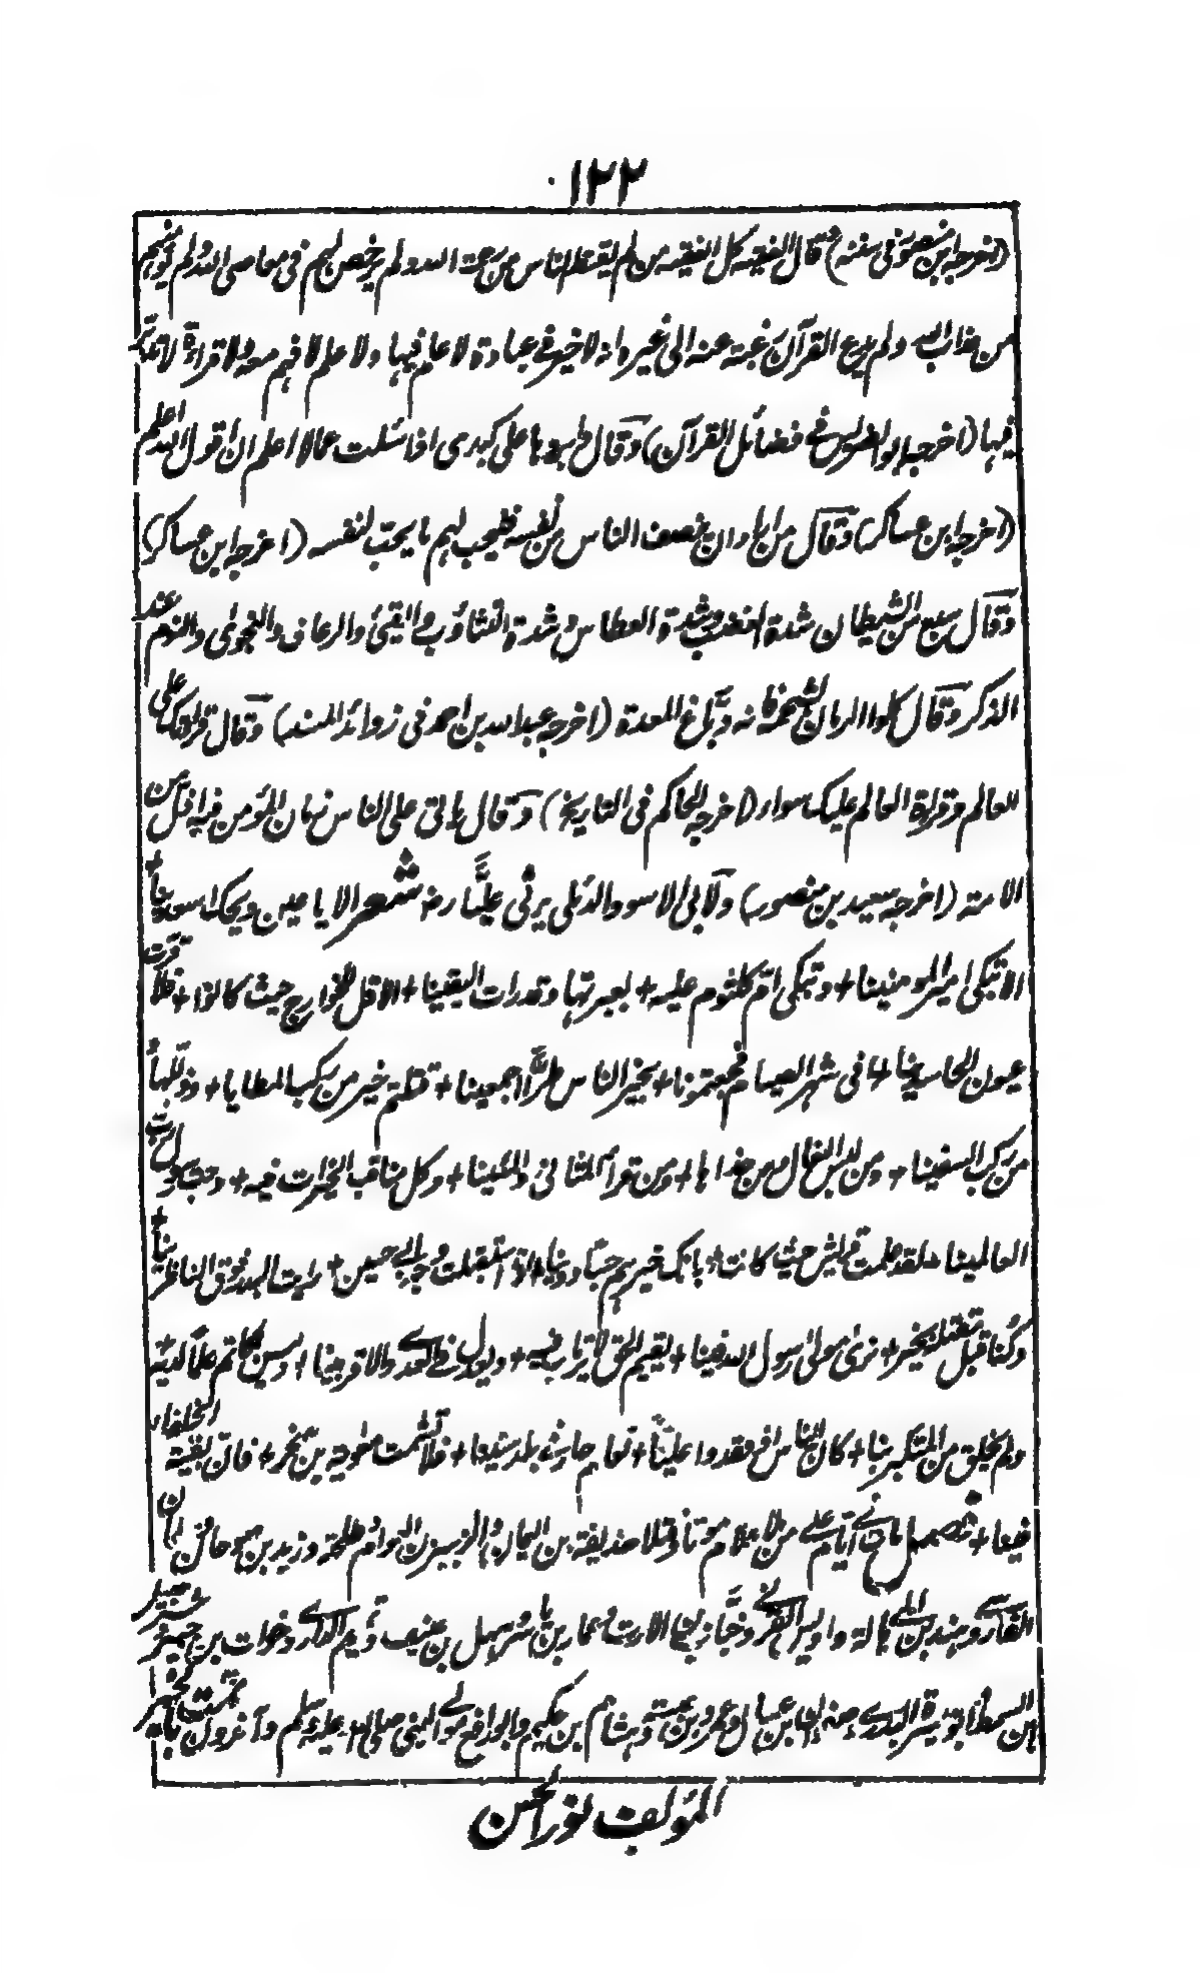 ١٢٢
(اخرجه ابن منصور فى سننه) وقال الفقيه كل الفقيه من لم يقنط الناس من رحمة الله ولم يرخص لهم فى معاصى الله ولم يؤمنهم
من عذاب الله ولم يدع القرآن رغبة عنه الى غيره انه لا خير فى عبادة لا علم فيها ولا علم لا فهم معه ولا قراءة لا تدبر
فيها (اخرجه ابن الضريس فى فضائل القرآن) وقال وابردها على كبدى اذا سئلت عما لا اعلم ان اقول الله اعلم
(اخرجه ابن عساكر) وقال من اراد ان ينصف الناس من نفسه فليحب لهم ما يحب لنفسه (اخرجه ابن عساكر)
وقال سبع من الشيطان شدة الغضب وشدة العطاس وشدة التثاؤب والقيئ والرعاف والنجوى والنوم عند
الذكر وقال كلوا الرمان بشحمه فانه دباغ المعدة (اخرجه عبدالله بن احمد فى زوائد المسند) وقال قراءتك على
العالم وقراءة العالم عليك سواء (اخرجه الحاكم فى التاريخ) وقال ياتى على الناس زمان المؤمن فيه اذل من
الامة (اخرجه سعيد بن منصور) ولابى الاسود الدئلى يرثى عليًّا رض شعر الا يا عين ويحك اسعدينا +
الا تبكى امير المومنينا + وتبكى ام كلثوم عليه + بعبرتها وقد رات اليقينا + الا قل للخوارج حيث كانوا + فلا قرت
عيون الحاسدينا + افى شهر الصيام فجعتمونا + بخير الناس طرًّا اجمعينا + قتلتم خير من ركب المطايا + وذللها
من ركب السفينا + ومن لبس النعال ومن حذاها + ومن قرأ المثانى والمئينا + وكل مناقب الخيرات فيه + وحب رسول رب
العالمينا + لقد علمت قريش حيث كانت + بانك خيرهم حبًّا ودينا + اذا استقبلت وجه ابى حسين + رايت البدر فوق الناظرينا +
وكنا قبل مقتله بخير + نرى مولى رسول الله فينا + يقيم الحق لا يرتاب فيه + ويعدل فى العدى والاقربينا + وليس بكاتم علمًا لديه +
ولم يخلق من المتكبرينا + كان الناس اذ فقدوا عليًّا + نعام حار فى بلد سنينا + فلا تشمت معوية بن صخر + فان بقية الخلفاء
فينا + فصل مات فى ايام على من الاعلام موتا وقتلا حذيفة بن اليمان والزبير بن العوام وطلحة وزيد بن صوحان وسلمان
الفارسى وهند بن ابى هالة واويس القرنى وخباب بن الارت وعمار بن ياسر وسهل بن حنيف وتميم الدارى وخوات بن جبير وشرحبيل
بن السمط وابو ميسرة البدرى وصفوان بن عسال وعمرو بن عبسة وهشام بن حكيم وابو رافع مولى النبى صلى الله عليه وسلم وآخرون تمت بالخير
المؤلف نور الحسن